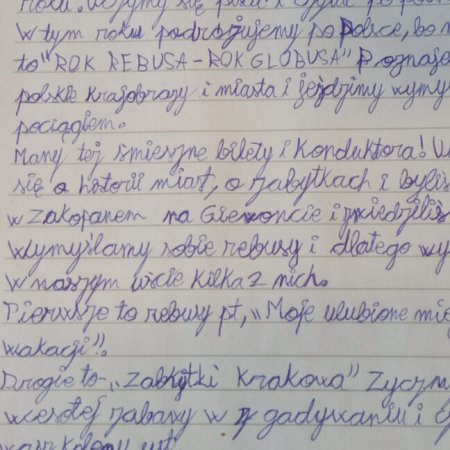 roku. Uczymy się pisać i czytać po po
W tym roku podróżujemy po Polsce, bo m
to "ROK REBUSA - ROK GLOBUSA" Poznaje
polskie krajobrazy i miasta i jeździmy wymy
pociągiem.
Mamy też śmieszne bilety i Konduktora! U
się o historii miast, o zabytkach i byliś
w Zakopanem na Giewoncie i zwiedziliś
Wymyślamy sobie rebusy i dlatego wy
w naszym liście kilka z nich.
Pierwsze to rebusy pt, "Moje ulubione mie
wakacji".
Drogie to- "Zabytki Krakowa" Życzym
wesołej zabawy w zgadywaniu i